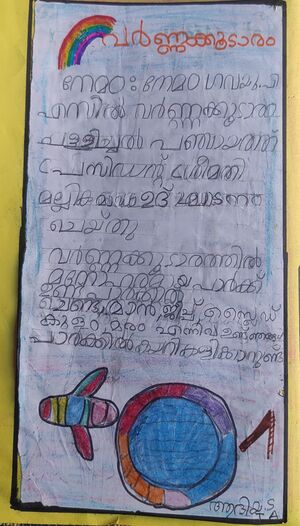 വർണ്ണക്കൂടാരം
നേമം: നേമം ഗവ.യു.പി
എസിൽ വർണ്ണക്കൂടാരം
പള്ളിച്ചൽ പഞ്ചായത്ത്
പ്രസിഡന്റ് ശ്രീമതി
മല്ലിക ഉദ്ഘാടനം
ചെയ്തു
വർണ്ണക്കൂടാരത്തിൽ
മനോഹരമായ പാർക്ക്
മാൻ, ജീപ്പ്, സ്ലൈഡ്
മരം എന്നിവ ഉണ്ട്
പാർക്കിൽ കളിക്കാറുണ്ട്